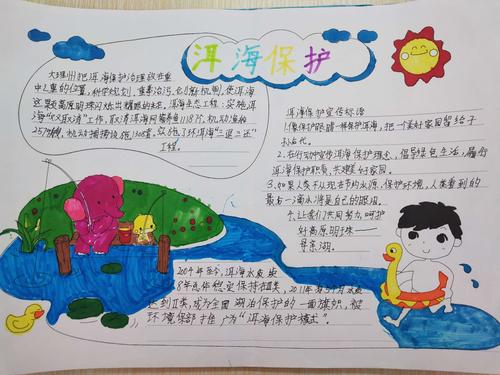 洱海保护
大理州把洱海保护治理放在重
中之重的位置,科学规划,重拳治污,创新机制,使洱海
这颗高原明珠闪烁出耀眼的光芒。洱海生态工程:实施洱
海“双取消”工作,取消洱海网箱养鱼11184个,机动渔船
2579艘,机动捞螺设施
了环洱海“三退三还”
工程。
洱海保护宣传标语
1.像保护眼睛一样保护洱海,把一个美好家园留给子
孙后代。
2.在行动中宣传洱海保护理念,倡导绿色生活,履行
洱海保护职责,共建美好家园。
3.如果人类不从现在节约水源,保护环境,人类看到的
最后一滴水将是自己的眼泪。
4.让我们共同努力,呵护
好高原明珠——
母亲湖。
2004年至今,洱海水质拔
8年总体稳定保持在Ⅲ类,2011年有5个月水质
达到Ⅱ类,成为全国湖泊治保护的一面旗帜,被
环境保部推广为“洱海保护模式”。